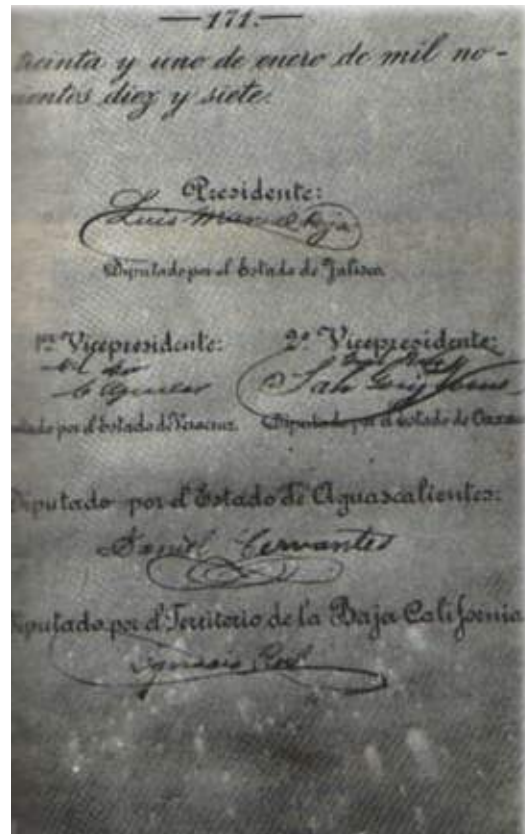 —171.—
treinta y uno de enero de mil no-
cientos diez y siete.
Presidente:
Luis Manuel Rojas
Diputado por el Estado de Jalisco.
1er Vicepresidente:
C Aguilar
Diputado por el Estado de Veracruz.
2º Vicepresidente:
Diputado por el Estado de Oaxaca
Diputado por el Estado de Aguascalientes:
Daniel Cervantes
Diputado por el Territorio de la Baja California
Ignacio Roel